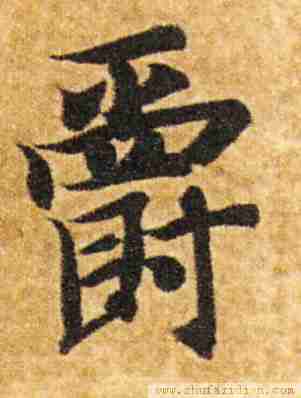 爵
www.zhufazidian.com